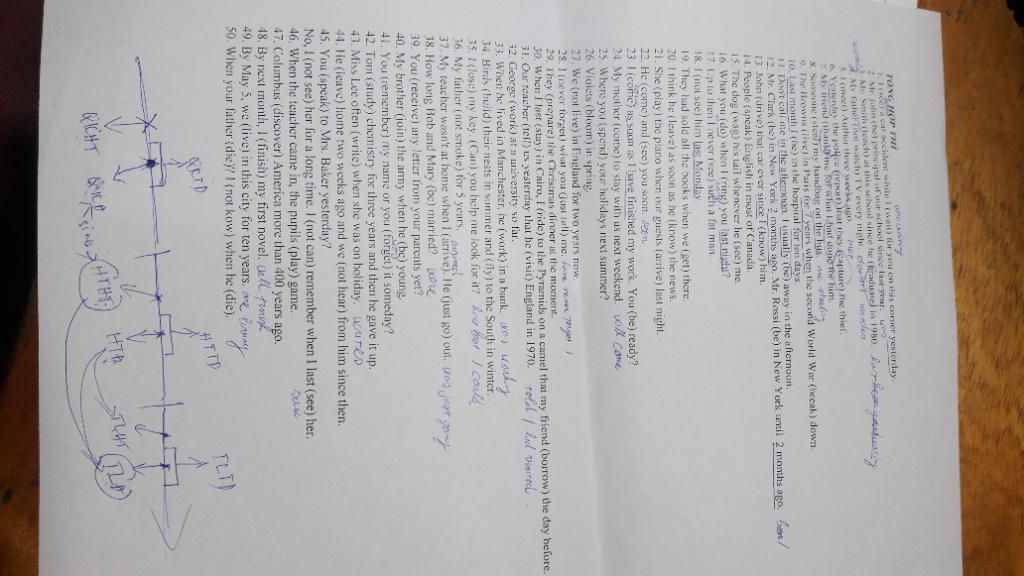 TỔNG HỢP THÌ
1. I (see) a car accident while I (wait) for you on this corner yesterday.
2. Mr. Jim (be) principal of our school since last year. was
3. Mr. Smith (teach) at this school since he (graduated) in 1980.
4. My father (not watch) TV every night.
5. I (meet) Arthur three weeks ago. met
6. Yesterday the police (report) that they (capture) the thief.
7. My friend (thank) me for what I had done for him.
8. Someone (steal) my handbag on the bus.
9. The Browns (live) in Paris for 7 years when the second World War (break) down.
10. Last month I (be) in the hospital for ten days.
11. Don't call me in the afternoon. I usually (be) away in the afternoon.
12. Mr. Clark (be) in New York 2 months ago. Mr. Rossi (be) in New York until 2 months ago. been
13. John (drive) that car ever since I (know) him.
14. People (speak) English in most of Canada.
15. The dog (wag) his tail whenever he (see) me.
16. What you (do) when I (ring) you last night?
17. Up to then I never (see) such a fat man.
18. I (not see) him last Monday.
19. They had sold all the books when we (get) there.
20. I think he (leave) as soon as he (know) the news.
21. She (play) the piano when our guests (arrive) last night.
22. He (come) and (see) you soon.
23. I (come) as soon as I have finished my work. You (be) ready?
24. My mother (come) to stay with us next weekend. will come
25. Where you (spend) your holidays next summer?
26. Violets (bloom) in spring.
27. We (not live) in England for two years now.
28. I never forget what you (just tell) me.
29. They (prepare) the Christmas dinner at the moment.
30. When I last (stay) in Cairo, I (ride) to the Pyramids on a camel that my friend (borrow) the day before.
31. Our teacher (tell) us yesterday that he (visit) England in 1970. told / had visited
32. George (work) at a university so far.
33. When he lived in Manchester, he (work) in a bank. was working
34. Birds (build) their nests in summer and (fly) to the South in winter.
35. I (lose) my key. (Can) you help me look for it?
36. My father (not smoke) for 5 years.
37. My teacher wasn't at home when I (arrive). He (just go) out. arrived was just going
38. How long Bob and Mary (be) married? were
39. You (receive) any letter from your parents yet?
40. My brother (join) the army when he (be) young.
41. You (remember) my name or you (forget) it someday?
42. Tom (study) chemistry for three years and then he gave it up.
43. Miss Lee often (write) when she was on holiday.
44. He (leave) home two weeks ago and we (not hear) from him since then.
45. You (speak) to Mrs. Baker yesterday?
No, I (not see) her for a long time. I (not can) remember when I last (see) her.
46. When the teacher came in, the pupils (play) game.
47. Columbus (discover) America more than 400 years ago.
48. By next month, I (finish) my first novel. will finish
49. By May 5, we (live) in this city for ten years. are living
50. When your father (die)? I (not know) when he (die).
QKTD HTTD TLTD
QKHT QKĐ HTHT HTĐ TLHT TLĐ